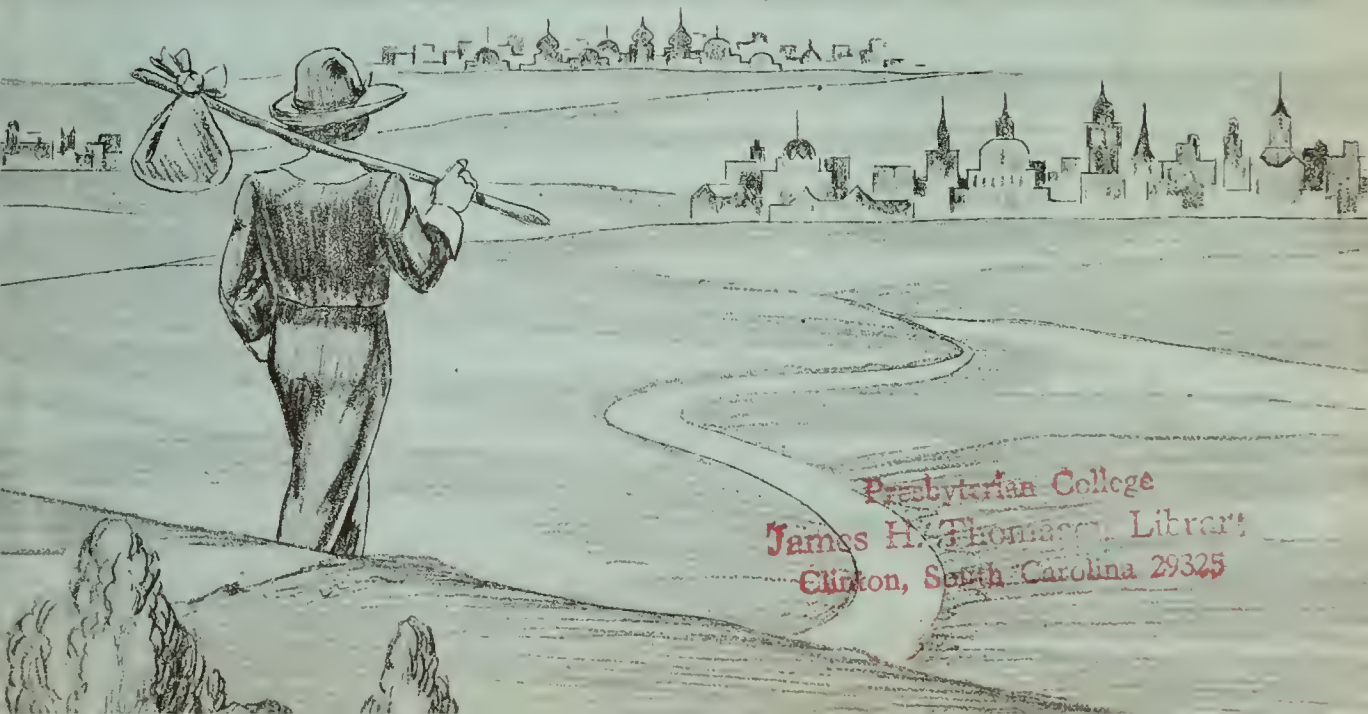 Presbyterian College
James H. Thomason Library
Clinton, South Carolina 29325